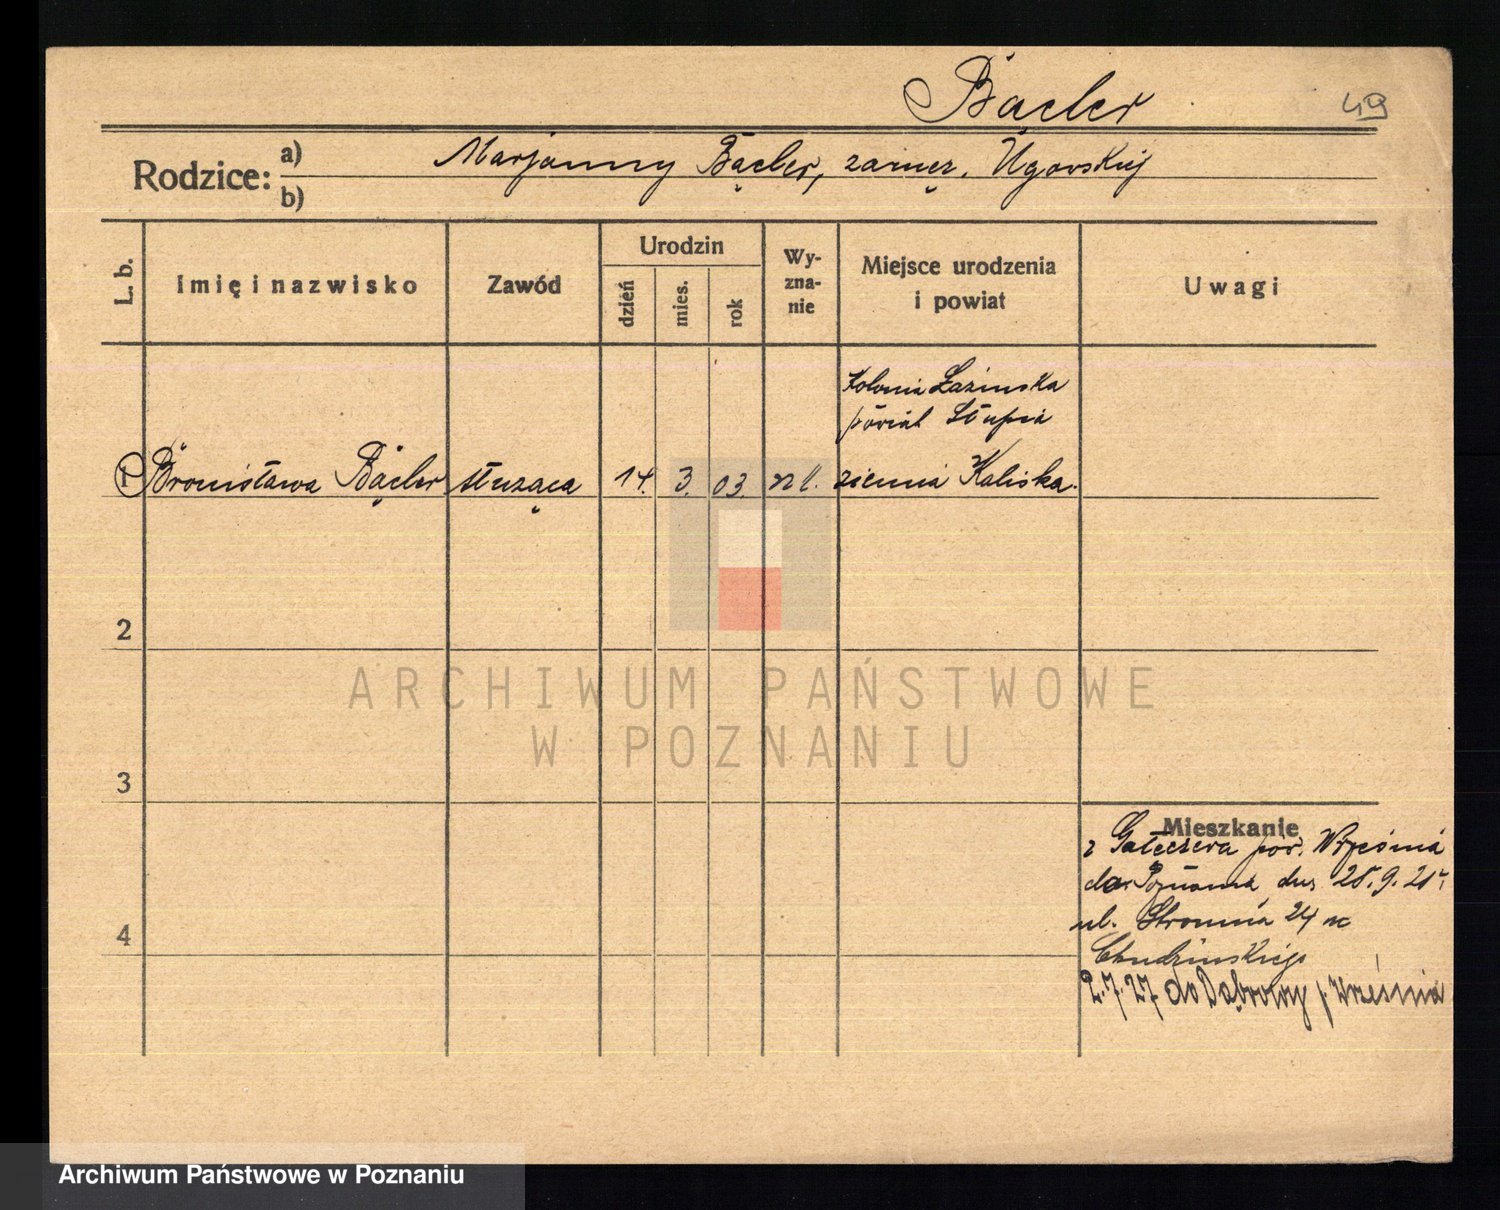 Bącler
49
Rodzice: a) Marjanny Bącler, zamęż. Ugowskiej
b)
L. b.
Imię i nazwisko
Zawód
Urodzin
dzień
mies.
rok
Wy-
zna-
nie
Miejsce urodzenia
i powiat
Uwagi
Kolonia Łazinska
powiat Słupia
1 Bronisława Bącler służąca 14. 3. 03. ziemia Kaliska.
2
ARCHIWUM PAŃSTWOWE
W POZNANIU
3
Mieszkanie
z pow. Września
do Poznania dnia 28.9.21 r.
ul. Stromna 24 u
Chudzinskiego
2.7.27 do Dąbrowy p. Września
4
Archiwum Państwowe w Poznaniu